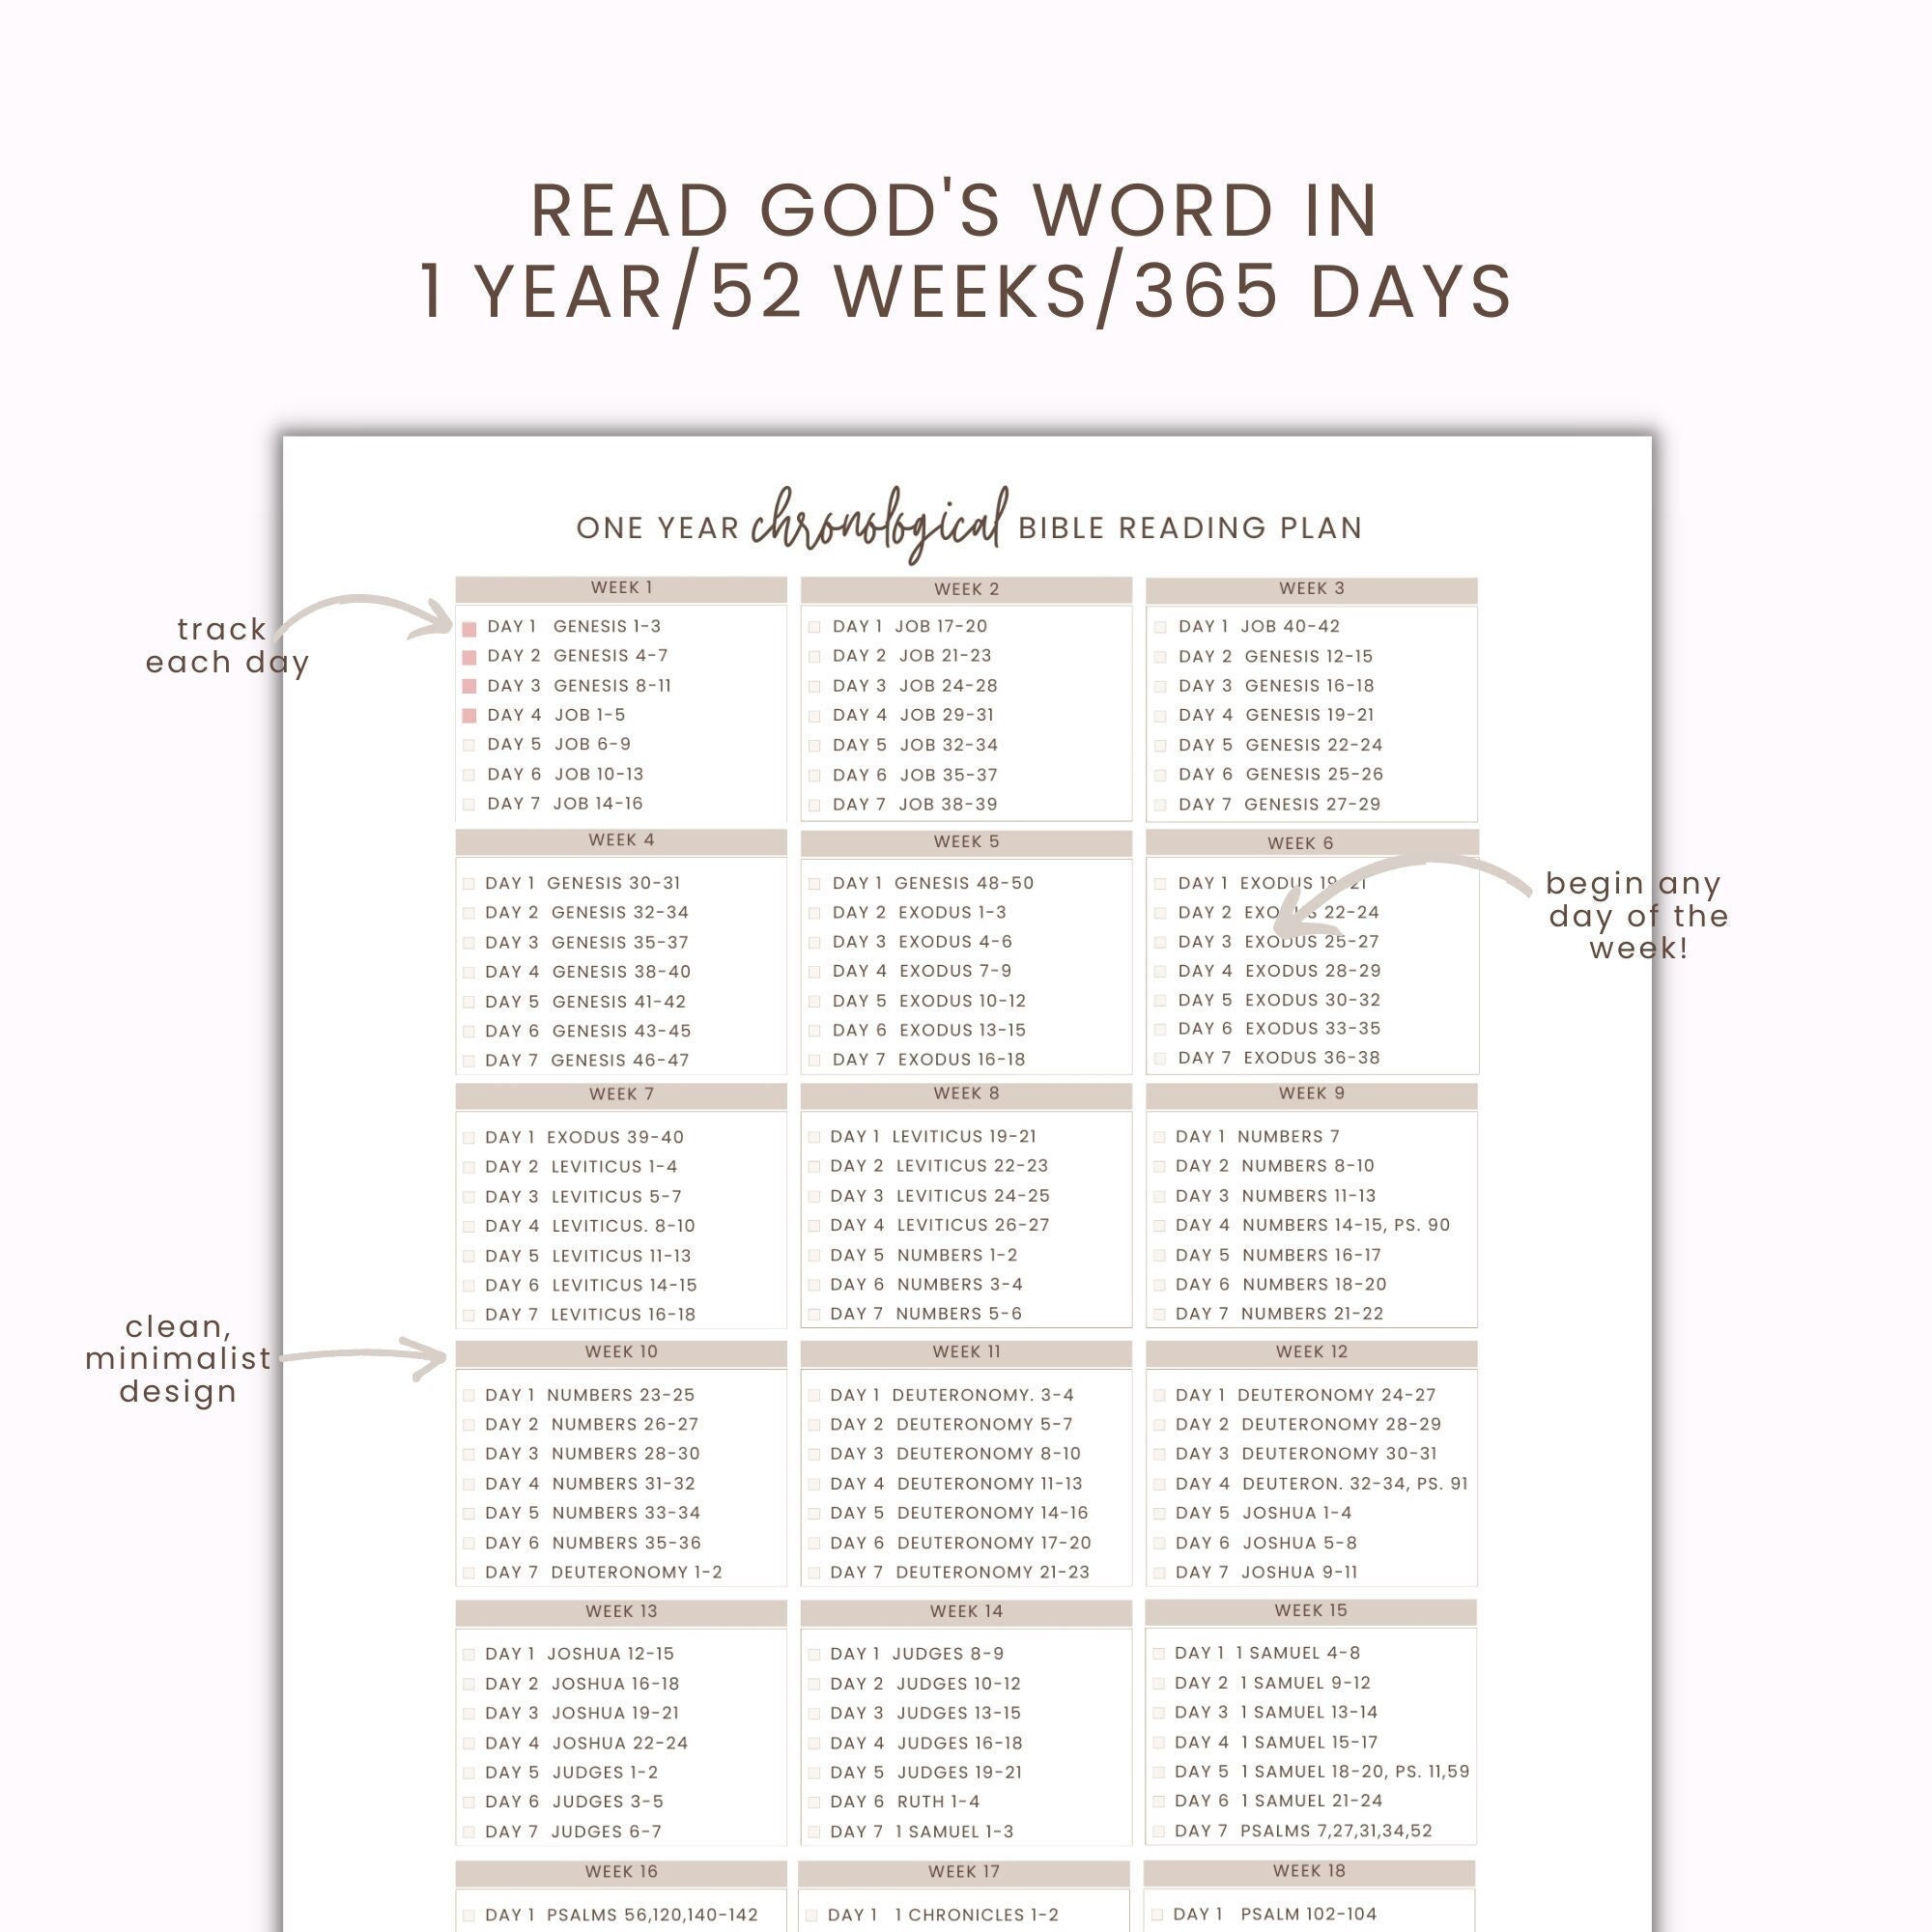 READ GOD'S WORD IN
1 YEAR/52 WEEKS/365 DAYS
ONE YEAR chronological BIBLE READING PLAN
track
each day
WEEK 1
DAY 1 GENESIS 1-3
DAY 2 GENESIS 4-7
DAY 3 GENESIS 8-11
DAY 4 JOB 1-5
DAY 5 JOB 6-9
DAY 6 JOB 10-13
DAY 7 JOB 14-16
WEEK 2
DAY 1 JOB 17-20
DAY 2 JOB 21-23
DAY 3 JOB 24-28
DAY 4 JOB 29-31
DAY 5 JOB 32-34
DAY 6 JOB 35-37
DAY 7 JOB 38-39
WEEK 3
DAY 1 JOB 40-42
DAY 2 GENESIS 12-15
DAY 3 GENESIS 16-18
DAY 4 GENESIS 19-21
DAY 5 GENESIS 22-24
DAY 6 GENESIS 25-26
DAY 7 GENESIS 27-29
WEEK 4
DAY 1 GENESIS 30-31
DAY 2 GENESIS 32-34
DAY 3 GENESIS 35-37
DAY 4 GENESIS 38-40
DAY 5 GENESIS 41-42
DAY 6 GENESIS 43-45
DAY 7 GENESIS 46-47
WEEK 5
DAY 1 GENESIS 48-50
DAY 2 EXODUS 1-3
DAY 3 EXODUS 4-6
DAY 4 EXODUS 7-9
DAY 5 EXODUS 10-12
DAY 6 EXODUS 13-15
DAY 7 EXODUS 16-18
WEEK 6
DAY 1 EXODUS 19-21
DAY 2 EXODUS 22-24
DAY 3 EXODUS 25-27
DAY 4 EXODUS 28-29
DAY 5 EXODUS 30-32
DAY 6 EXODUS 33-35
DAY 7 EXODUS 36-38
begin any
day of the
week!
WEEK 7
DAY 1 EXODUS 39-40
DAY 2 LEVITICUS 1-4
DAY 3 LEVITICUS 5-7
DAY 4 LEVITICUS. 8-10
DAY 5 LEVITICUS 11-13
DAY 6 LEVITICUS 14-15
DAY 7 LEVITICUS 16-18
WEEK 8
DAY 1 LEVITICUS 19-21
DAY 2 LEVITICUS 22-23
DAY 3 LEVITICUS 24-25
DAY 4 LEVITICUS 26-27
DAY 5 NUMBERS 1-2
DAY 6 NUMBERS 3-4
DAY 7 NUMBERS 5-6
WEEK 9
DAY 1 NUMBERS 7
DAY 2 NUMBERS 8-10
DAY 3 NUMBERS 11-13
DAY 4 NUMBERS 14-15, PS. 90
DAY 5 NUMBERS 16-17
DAY 6 NUMBERS 18-20
DAY 7 NUMBERS 21-22
clean,
minimalist
design
WEEK 10
DAY 1 NUMBERS 23-25
DAY 2 NUMBERS 26-27
DAY 3 NUMBERS 28-30
DAY 4 NUMBERS 31-32
DAY 5 NUMBERS 33-34
DAY 6 NUMBERS 35-36
DAY 7 DEUTERONOMY 1-2
WEEK 11
DAY 1 DEUTERONOMY. 3-4
DAY 2 DEUTERONOMY 5-7
DAY 3 DEUTERONOMY 8-10
DAY 4 DEUTERONOMY 11-13
DAY 5 DEUTERONOMY 14-16
DAY 6 DEUTERONOMY 17-20
DAY 7 DEUTERONOMY 21-23
WEEK 12
DAY 1 DEUTERONOMY 24-27
DAY 2 DEUTERONOMY 28-29
DAY 3 DEUTERONOMY 30-31
DAY 4 DEUTERON. 32-34, PS. 91
DAY 5 JOSHUA 1-4
DAY 6 JOSHUA 5-8
DAY 7 JOSHUA 9-11
WEEK 13
DAY 1 JOSHUA 12-15
DAY 2 JOSHUA 16-18
DAY 3 JOSHUA 19-21
DAY 4 JOSHUA 22-24
DAY 5 JUDGES 1-2
DAY 6 JUDGES 3-5
DAY 7 JUDGES 6-7
WEEK 14
DAY 1 JUDGES 8-9
DAY 2 JUDGES 10-12
DAY 3 JUDGES 13-15
DAY 4 JUDGES 16-18
DAY 5 JUDGES 19-21
DAY 6 RUTH 1-4
DAY 7 1 SAMUEL 1-3
WEEK 15
DAY 1 1 SAMUEL 4-8
DAY 2 1 SAMUEL 9-12
DAY 3 1 SAMUEL 13-14
DAY 4 1 SAMUEL 15-17
DAY 5 1 SAMUEL 18-20, PS. 11,59
DAY 6 1 SAMUEL 21-24
DAY 7 PSALMS 7,27,31,34,52
WEEK 16
DAY 1 PSALMS 56,120,140-142
WEEK 17
DAY 1 1 CHRONICLES 1-2
WEEK 18
DAY 1 PSALM 102-104